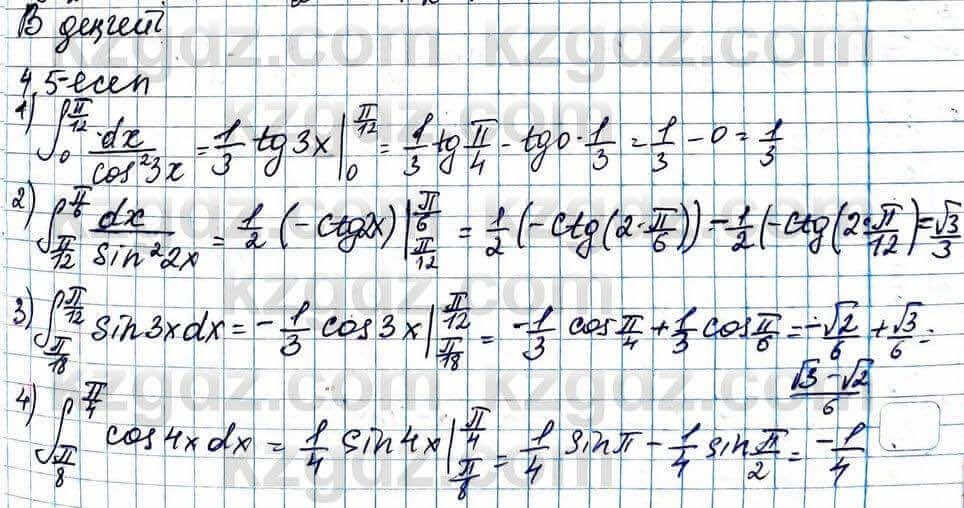 В деңгейі
4,5-есеп
1) ∫₀^(π/12) dx/cos²3x = 1/3 tg3x |₀^(π/12) = 1/3 tg π/4 - tg0 · 1/3 = 1/3 - 0 = 1/3
2) ∫_(π/12)^(π/6) dx/sin²2x = 1/2 (-ctg2x) |_(π/12)^(π/6) = 1/2 (-ctg(2·π/6)) - 1/2 (-ctg(2·π/12) = √3/3
3) ∫_(π/18)^(π/12) sin3xdx = -1/3 cos3x |_(π/18)^(π/12) = -1/3 cos π/4 + 1/3 cos π/6 = -√2/6 + √3/6 =
(√3-√2)/6
4) ∫_(π/8)^(π/4) cos4xdx = 1/4 sin4x |_(π/8)^(π/4) = 1/4 sinπ - 1/4 sin π/2 = -1/4
kzgdz.com